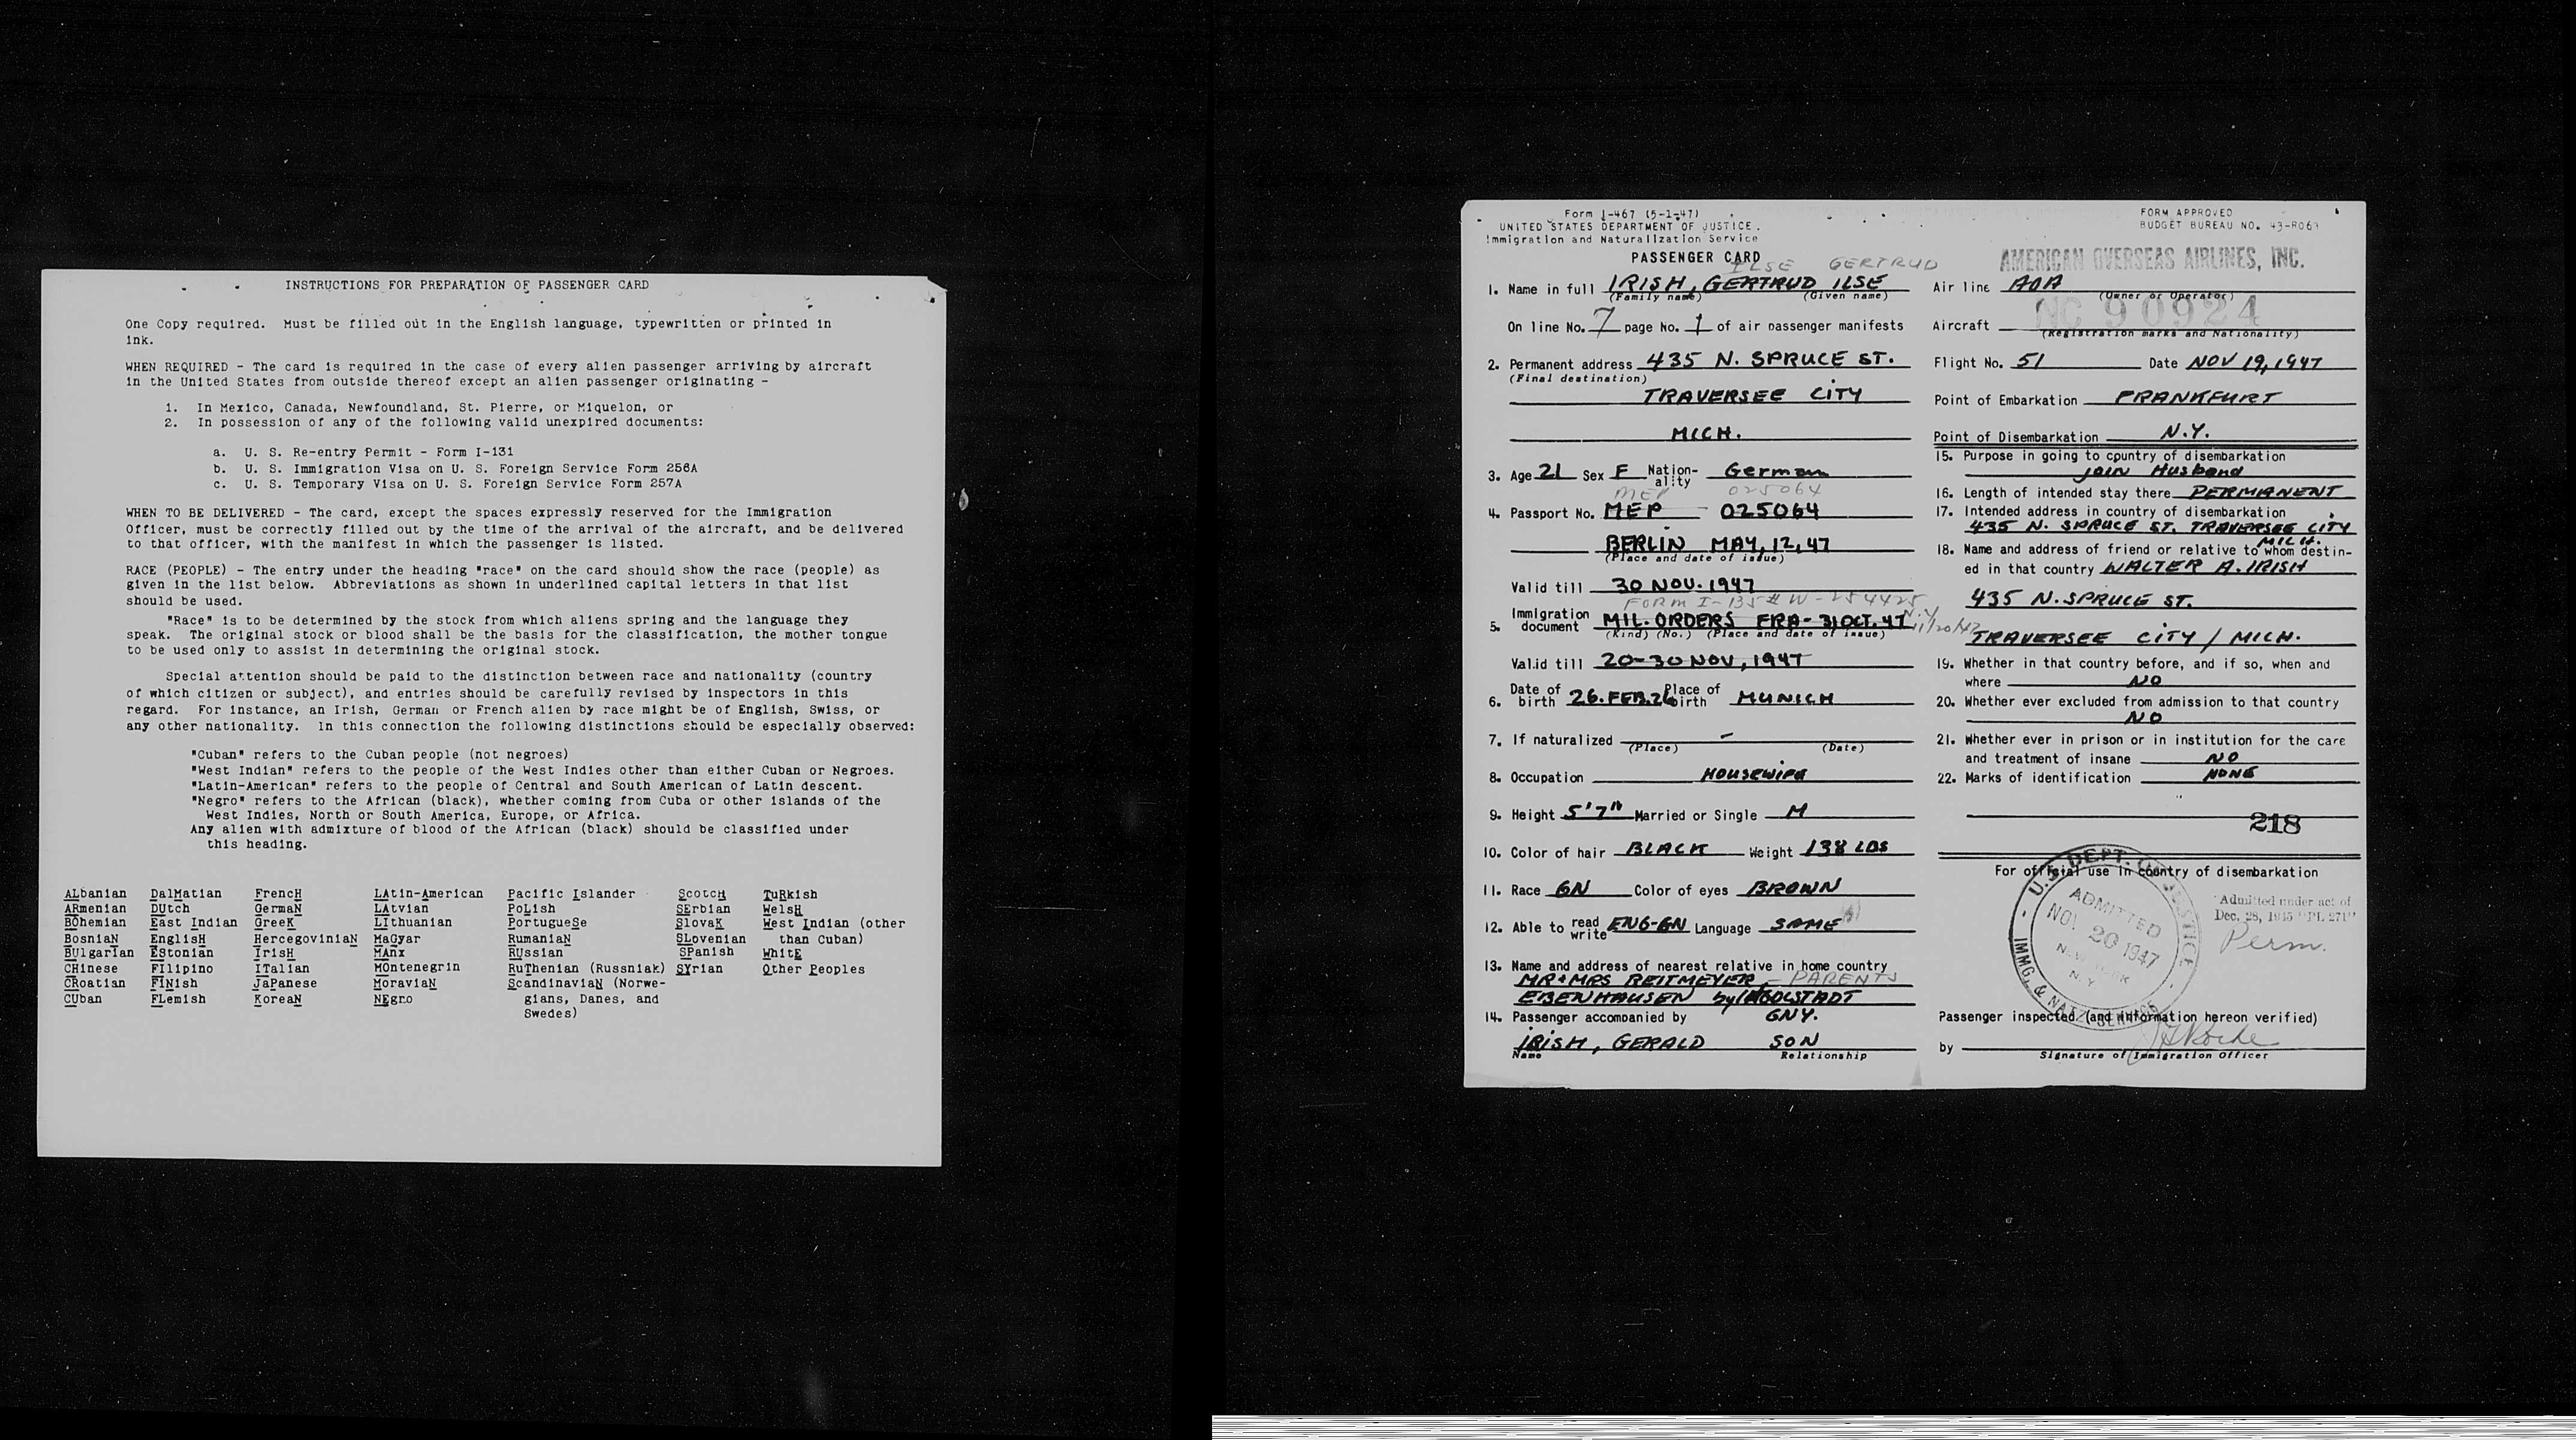 INSTRUCTIONS FOR PREPARATION OF PASSENGER CARD
One Copy required. Must be filled out in the English language, typewritten or printed in
ink.
WHEN REQUIRED - The card is required in the case of every alien passenger arriving by aircraft
in the United States from outside thereof except an alien passenger originating -
1. In Mexico, Canada, Newfoundland, St. Pierre, or Miquelon, or
2. In possession of any of the following valid unexpired documents:
a. U. S. Re-entry Permit - Form I-131
b. U. S. Immigration Visa on U. S. Foreign Service Form 256A
c. U. S. Temporary Visa on U. S. Foreign Service Form 257A
WHEN TO BE DELIVERED - The card, except the spaces expressly reserved for the Immigration
Officer, must be correctly filled out by the time of the arrival of the aircraft, and be delivered
to that officer, with the manifest in which the passenger is listed.
RACE (PEOPLE) - The entry under the heading "race" on the card should show the race (people) as
given in the list below. Abbreviations as shown in underlined capital letters in that list
should be used.
"Race" is to be determined by the stock from which aliens spring and the language they
speak. The original stock or blood shall be the basis for the classification, the mother tongue
to be used only to assist in determining the original stock.
Special attention should be paid to the distinction between race and nationality (country
of which citizen or subject), and entries should be carefully revised by inspectors in this
regard. For instance, an Irish, German or French alien by race might be of English, Swiss, or
any other nationality. In this connection the following distinctions should be especially observed:
"Cuban" refers to the Cuban people (not negroes)
"West Indian" refers to the people of the West Indies other than either Cuban or Negroes.
"Latin-American" refers to the people of Central and South American of Latin descent.
"Negro" refers to the African (black), whether coming from Cuba or other islands of the
West Indies, North or South America, Europe, or Africa.
Any alien with admixture of blood of the African (black) should be classified under
this heading.
ALbanian DalMatian FrencH LAtin-American Pacific Islander ScotcH TuRkish
ARmenian DUtch GermaN LAtvian PoLish SErbian WelsH
BOhemian East Indian GreeK LIthuanian PortugueSe SlovaK West Indian (other
BosniaN EnglisH HercegoviniaN MaGyar RumaniaN SLovenian than Cuban)
BUlgarian EStonian IrisH MAnx RUssian SPanish WhitE
CHinese FIlipino ITalian MOntenegrin RuThenian (Russniak) SYrian Other Peoples
CRoatian FINish JaPanese MoraviaN ScandinaviaN (Norwe-
CUban FLemish KoreaN NEgro gians, Danes, and
Swedes)
Form I-467 (5-1-47)
UNITED STATES DEPARTMENT OF JUSTICE.
Immigration and Naturalization Service
PASSENGER CARD
ILSE GERTRUD
1. Name in full IRISH, GERTRUD ILSE
(Family name) (Given name)
On line No. 7 page No. 1 of air passenger manifests
2. Permanent address 435 N. SPRUCE ST.
(Final destination)
TRAVERSEE CITY
MICH.
3. Age 21 Sex F Nation-ality German
MEP 025064
4. Passport No. MEP 025064
BERLIN MAY, 12, 47
(Place and date of issue)
Valid till 30 NOV. 1947
FORM I-135 # W-254425
5. Immigration document MIL. ORDERS FRA - 31 OCT. 47 N.Y. 11/20/47
(Kind) (No.) (Place and date of issue)
Valid till 20-30 NOV, 1947
6. Date of birth 26. FEB. 26 Place of birth MUNICH
7. If naturalized -
(Place) (Date)
8. Occupation HOUSEWIFE
9. Height 5'7" Married or Single M
10. Color of hair BLACK Weight 138 LBS
11. Race GN Color of eyes BROWN
12. Able to read write ENG-GN Language SAME
13. Name and address of nearest relative in home country
MR + MRS REITMEYER - PARENTS
EBENHAUSEN by INGOLSTADT
14. Passenger accompanied by GNY.
IRISH, GERALD SON
Name Relationship
FORM APPROVED
BUDGET BUREAU NO. 43-R063
AMERICAN OVERSEAS AIRLINES, INC.
Air line AOA
(Owner or Operator)
Aircraft NC 90924
(Registration marks and Nationality)
Flight No. 51 Date NOV 19, 1947
Point of Embarkation FRANKFURT
Point of Disembarkation N.Y.
15. Purpose in going to country of disembarkation
join Husband
16. Length of intended stay there PERMANENT
17. Intended address in country of disembarkation
435 N. SPRUCE ST. TRAVERSEE CITY
MICH.
18. Name and address of friend or relative to whom destin-
ed in that country WALTER A. IRISH
435 N. SPRUCE ST.
TRAVERSEE CITY / MICH.
19. Whether in that country before, and if so, when and
where NO
20. Whether ever excluded from admission to that country
NO
21. Whether ever in prison or in institution for the care
and treatment of insane NO
22. Marks of identification NONE
218
For official use in country of disembarkation
U.S. DEPT. OF JUSTICE
ADMITTED
NOV 20 1947
NEW YORK
N. Y.
IMMG. & NATZ. SERVICE
"Admitted under act of
Dec. 28, 1945 "PL 271"
Perm.
Passenger inspected (and information hereon verified)
by
Signature of Immigration Officer